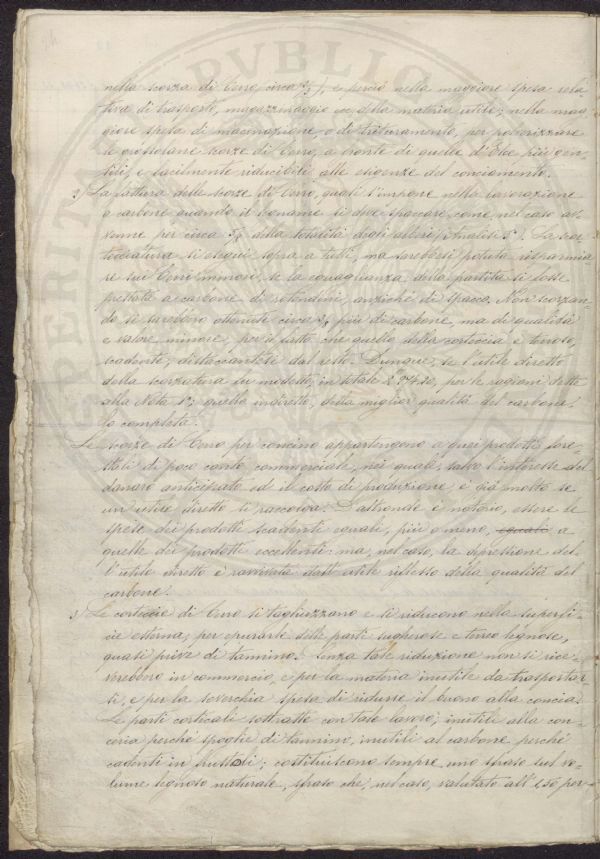 nella scorza di Cerro, circa 2/3), e perciò nella maggiore spesa rela-
tiva di trasporti, magazzinaggio ecc. della materia utile; nella mag-
giore spesa di macinazione, o di trituramento, per polverizzare
le grossolane scorze di Cerro, a fronte di quelle d'Elce più gen-
tili, e facilmente riducibili alle esigenze del conciamento.
2) La fattura delle scorze di Cerro, quasi s'impone nella lavorazione
a carbone quando il legname si deve spaccare, come, nel caso av-
venne per circa della totalità degli alberi (Analisi 5ª). La scor-
tecciatura si eseguì sopra a tutti, ma sarebbesi potuta risparmia-
re sui Cerri minori, se la eguaglianza della partita si fosse
prestata a carbone di rotondini, anzichè di spacco. Non scorzan-
do si sarebbero ottenuti circa più di carbone, ma di qualità
e valore minore, per il fatto che quello della corteccia è terroso,
scadente, distaccantesi dal resto. Dunque, se l'utile diretto
della scorzatura fu modesto, in totale L. per le ragioni dette
alla Nota 1ª; quello indiretto, della miglior qualità del carbone,
lo completa.
Le scorze di Cerro per concino appartengono a quei prodotti fore-
stali di poco conto commerciale, nei quali, salvo l'interesse del
danaro anticipato ed il costo di produzione, è già molto se
un utile diretto si raccolga. D'altronde è notorio, essere le
spese dei prodotti scadenti eguali, più o meno, eguali a
quelle dei prodotti eccellenti: ma, nel caso, la depressione del-
l'utile diretto è ravvivata dall'utile riflesso della qualità del
carbone.
3) Le corteccie di Cerro si tagliuzzano e si riducono nella superfi-
cie esterna, per epurarle delle parti sugherose e terreo legnose,
quasi prive di tannino. Senza tale riduzione non si rice-
verebbero in commercio, e per la materia inutile da trasportar-
si, e per la soverchia spesa di ridurre il buono alla concia.
Le parti corticali sottratte con tale lavoro; inutili alla con-
ceria perchè spoglie di tannino, inutili al carbone perchè
cadenti in frustoli; costituiscono sempre uno sfraso sul vo-
lume legnoso naturale, sfraso che, nel caso, valutato all'1,50 per